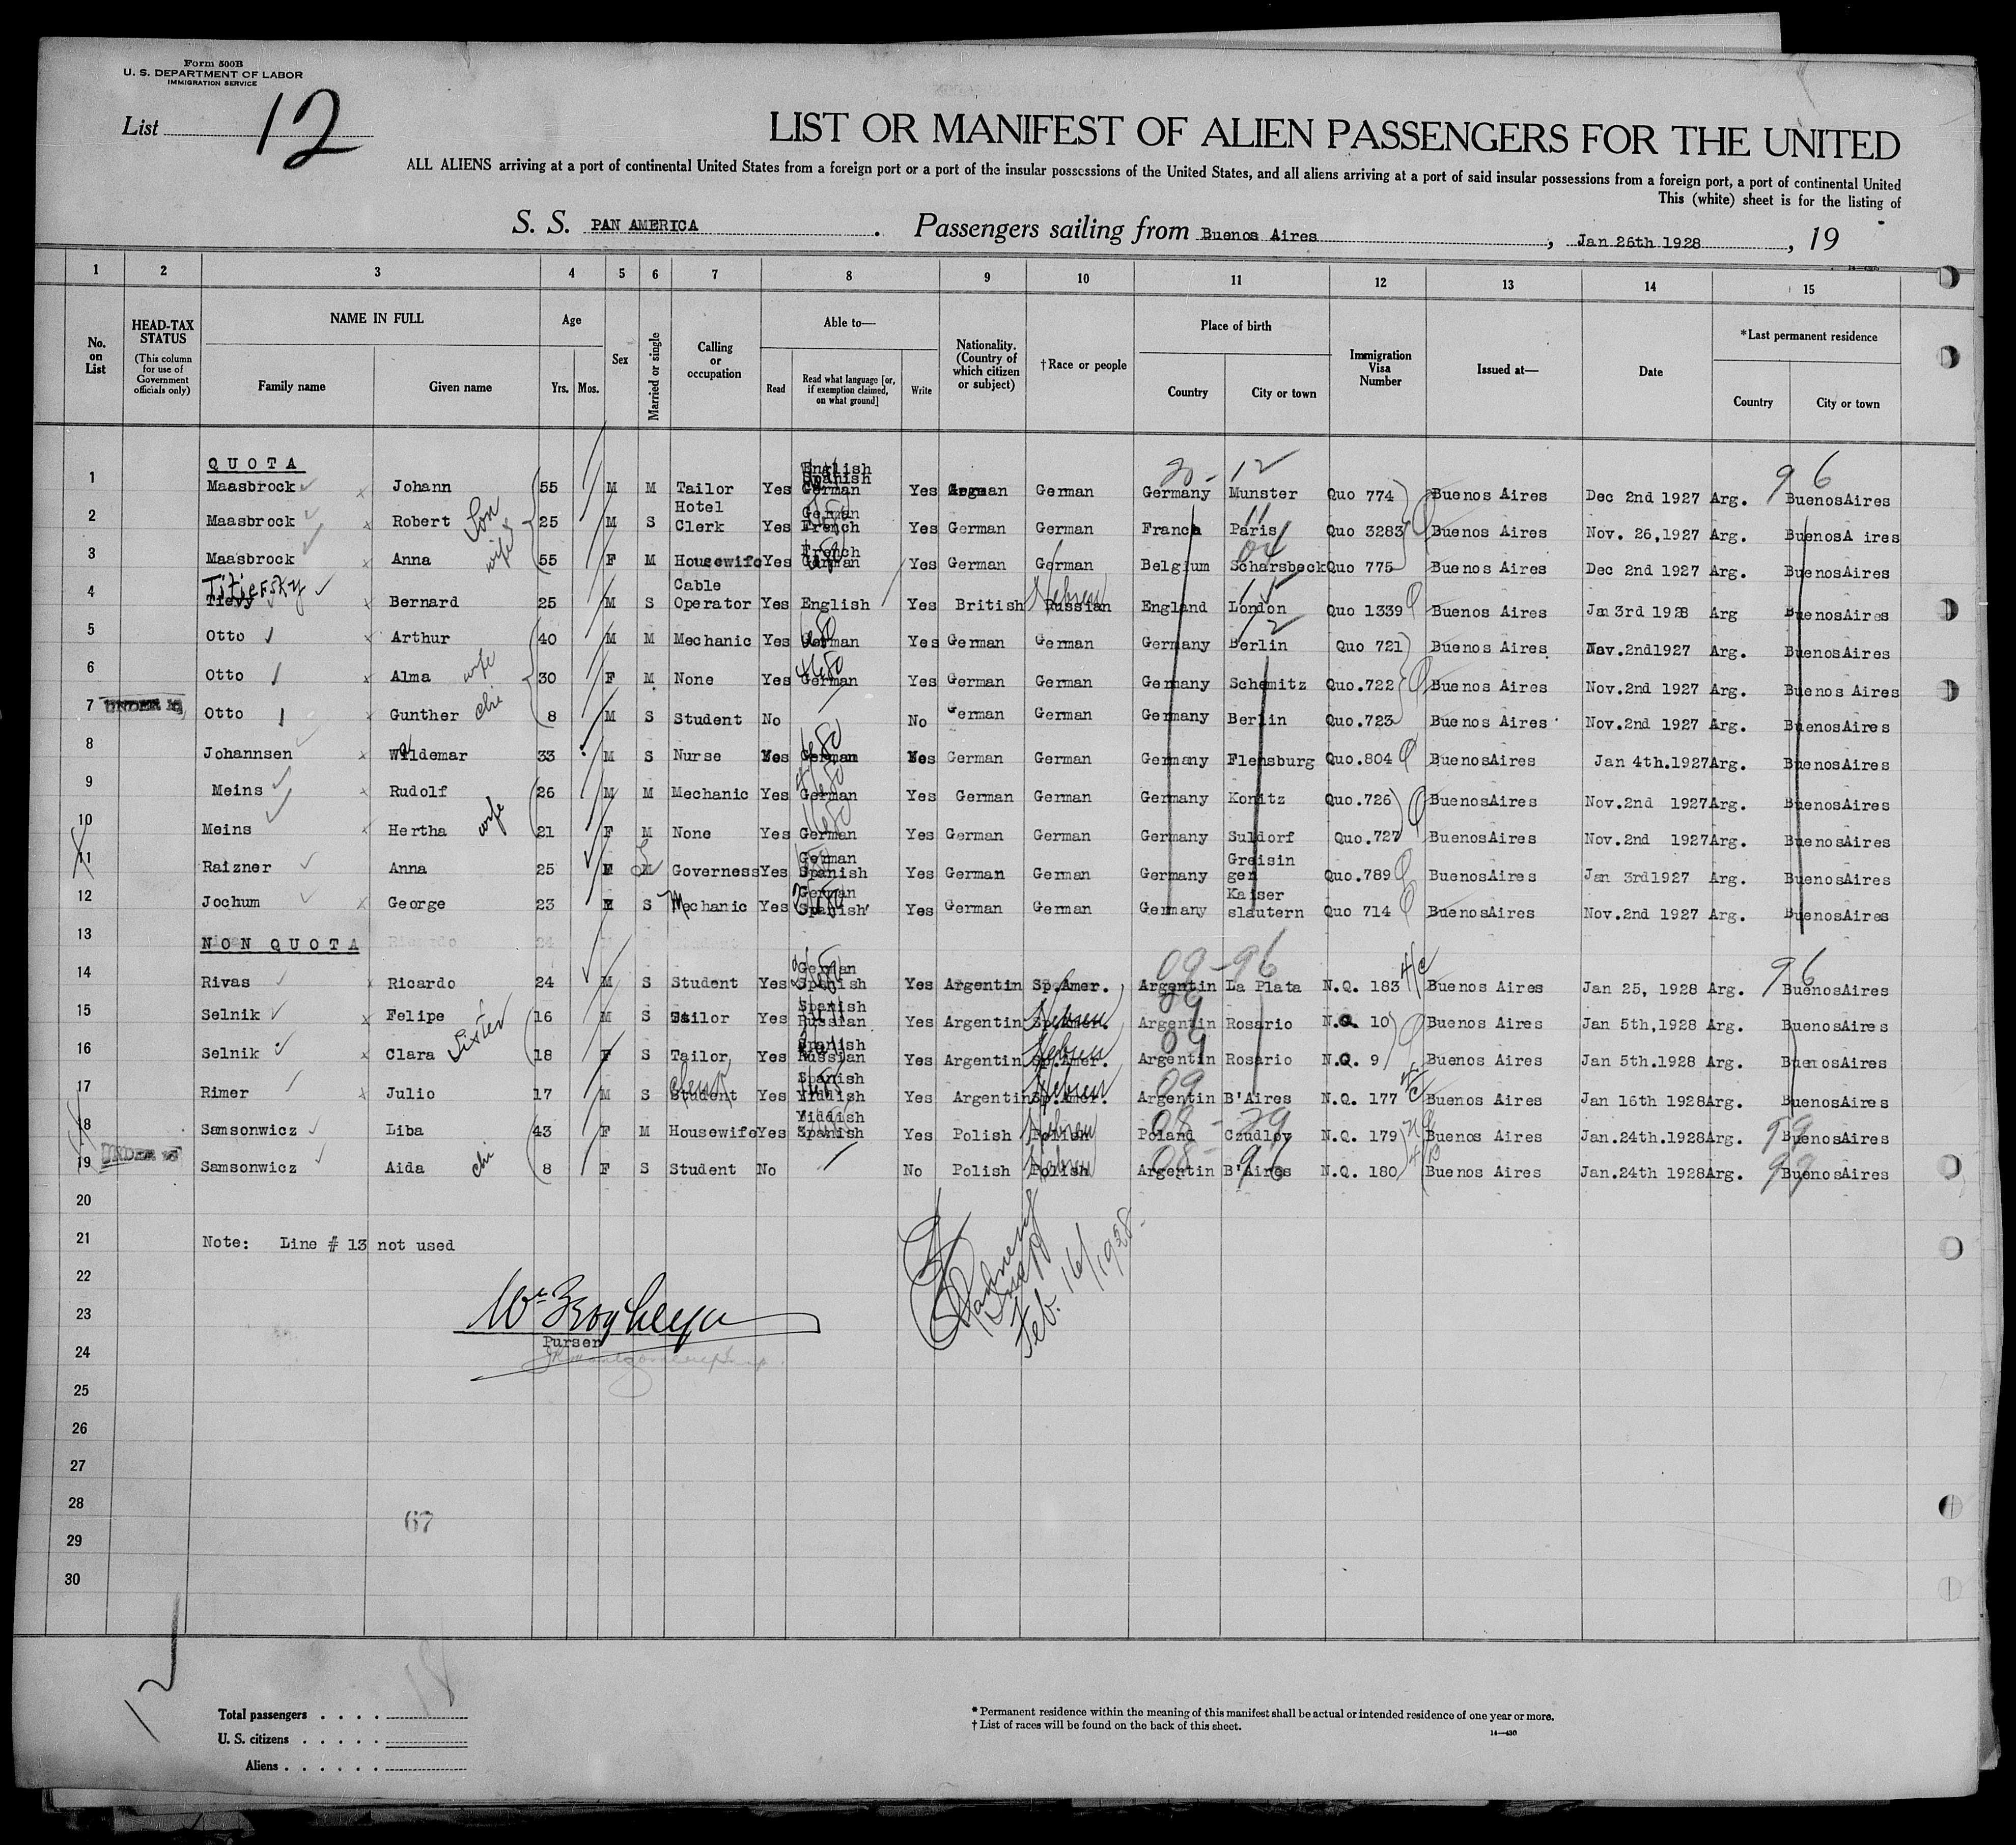 Form 500B
U. S. DEPARTMENT OF LABOR
IMMIGRATION SERVICE
List 12
LIST OR MANIFEST OF ALIEN PASSENGERS FOR THE UNITED
ALL ALIENS arriving at a port of continental United States from a foreign port or a port of the insular possessions of the United States, and all aliens arriving at a port of said insular possessions from a foreign port, a port of continental United
This (white) sheet is for the listing of
S. S. PAN AMERICA. Passengers sailing from Buenos Aires, Jan 26th 1928, 19
1 2 3 4 5 6 7 8 9 10 11 12 13 14 15
No. on List
HEAD-TAX STATUS
(This column for use of Government officials only)
NAME IN FULL
Family name Given name
Age
Yrs. Mos.
Sex
Married or single
Calling or occupation
Able to—
Read
Read what language [or, if exemption claimed, on what ground]
Write
Nationality. (Country of which citizen or subject)
†Race or people
Place of birth
Country City or town
Immigration Visa Number
Issued at—
Date
*Last permanent residence
Country City or town
QUOTA
20 - 12 96
1 Maasbrock Johann 55 M M Tailor Yes English Spanish German Yes German German Germany Munster Quo 774 Buenos Aires Dec 2nd 1927 Arg. BuenosAires
2 Maasbrock Robert Son 25 M S Hotel Clerk Yes German French Yes German German France Paris Quo 3283 Buenos Aires Nov. 26,1927 Arg. BuenosA ires
3 Maasbrock Anna wife 55 F M Housewife Yes French German Yes German German Belgium Scharsbeck Quo 775 Buenos Aires Dec 2nd 1927 Arg. BuenosAires
4 Titiefsky Tievy Bernard 25 M S Cable Operator Yes English Yes British Russian Hebrew England London Quo 1339 Buenos Aires Jan 3rd 1928 Arg BuenosAires
5 Otto Arthur 40 M M Mechanic Yes German Yes German German Germany Berlin Quo 721 Buenos Aires Nov.2nd1927 Arg. BuenosAires
6 Otto Alma wife 30 F M None Yes German Yes German German Germany Schemitz Quo.722 Buenos Aires Nov.2nd 1927 Arg. Buenos Aires
7 UNDER 16 Otto Gunther chi 8 M S Student No No German German Germany Berlin Quo.723 Buenos Aires Nov.2nd 1927 Arg. BuenosAires
8 Johannsen Waldemar 33 M S Nurse Yes German Yes German German Germany Flensburg Quo.804 BuenosAires Jan 4th.1927 Arg. BuenosAires
9 Meins Rudolf 26 M M Mechanic Yes German Yes German German Germany Konitz Quo.726 BuenosAires Nov.2nd 1927 Arg. BuenosAires
10 Meins Hertha wife 21 F M None Yes German Yes German German Germany Suldorf Quo.727 BuenosAires Nov.2nd 1927 Arg. BuenosAires
11 Raizner Anna 25 F M S Governess Yes German Spanish Yes German German Germany Greisin gen Quo.789 BuenosAires Jan 3rd1927 Arg. BuenosAires
12 Jochum George 23 M S Mechanic Yes German Spanish Yes German German Germany Kaiser slautern Quo 714 BuenosAires Nov.2nd 1927 Arg. BuenosAires
13 NON QUOTA
09-96 96
14 Rivas Ricardo 24 M S Student Yes German Spanish Yes Argentin Sp.Amer. Argentin La Plata N.Q. 183 4/c Buenos Aires Jan 25, 1928 Arg. BuenosAires
15 Selnik Felipe 16 M S Tailor Yes Spanish Russian Yes Argentin Sp.Amer. Hebrew 09 Argentin Rosario N.Q. 10 Buenos Aires Jan 5th,1928 Arg. BuenosAires
16 Selnik Clara Sister 18 F S Tailor Yes Spanish Russian Yes Argentin Sp.Amer. Hebrew 09 Argentin Rosario N.Q. 9 Buenos Aires Jan 5th.1928 Arg. BuenosAires
17 Rimer Julio 17 M S Student Yes Spanish Yiddish Yes Argentin Sp.Amer. Hebrew 09 Argentin B'Aires N.Q. 177 4/c Buenos Aires Jan 16th 1928 Arg. BuenosAires
18 Samsonwicz Liba 43 F M Housewife Yes Yiddish Spanish Yes Polish Polish Hebrew 08 - 29 Poland Czudley N.Q. 179 Buenos Aires Jan.24th.1928 Arg. 99 BuenosAires
19 UNDER 16 Samsonwicz Aida chi 8 F S Student No No Polish Polish Hebrew 08 - 96 Argentin B'Aires N.Q. 180 Buenos Aires Jan.24th 1928 Arg. 99 BuenosAires
20
21 Note: Line # 13 not used
22
23
Purser
Feb. 16/1928
24
25
26
27
28
67
29
30
12
Total passengers 18
U. S. citizens
Aliens
* Permanent residence within the meaning of this manifest shall be actual or intended residence of one year or more.
† List of races will be found on the back of this sheet.
14—430